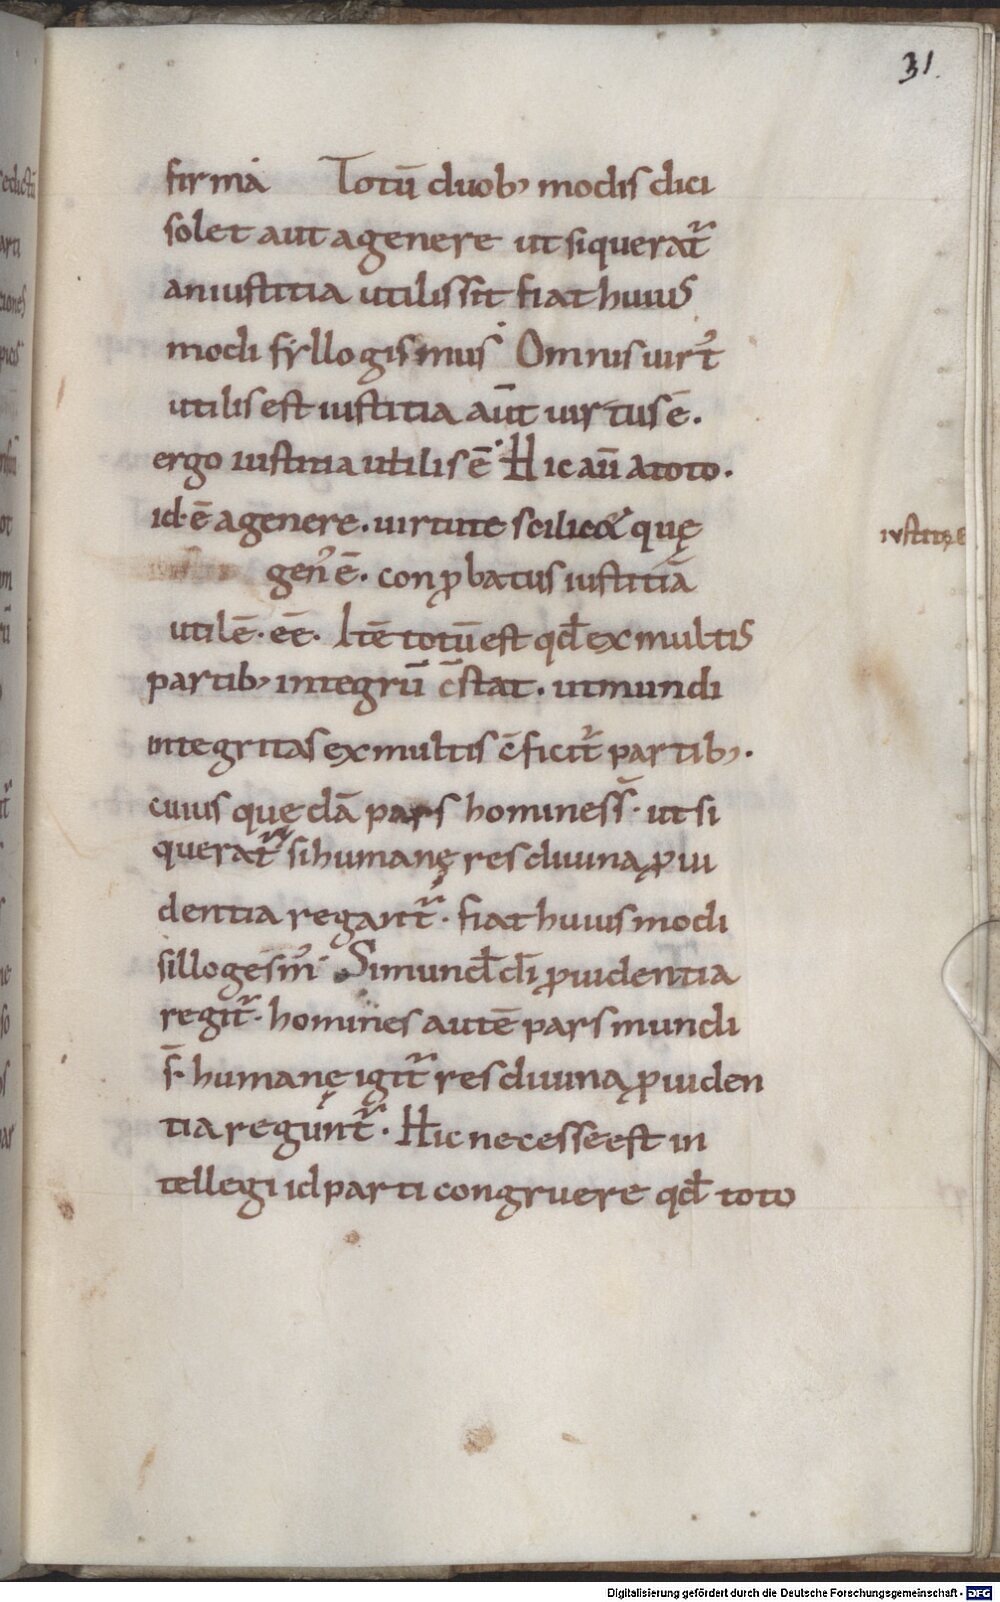 31.
firmā Totū duob; modis dici
solet aut a genere ut si querat᷑
an iustitia utilis sit fiat huius
modi syllogismus Omnis uirt᷒
utilis est iustitia aūt uirtus ē.
ergo iustitia utilis ē Hic aū a toto.
id·ē a genere. uirtute scilic& quę
iustitię
gen᷒ ē. conꝓbatus iustitiā
utilē·eē. Itē totū est qđ ex multis
partib; integrū c̄stat. ut mundi
integritas ex multis c̄ficit᷑ partib;.
cuius quędā pars homines s̄· ut si
querat᷑ si humanę res diuina ꝓui
dentia regant᷑· fiat huius modi
sillogesm᷒ Si mund᷒ dī ꝓuidentia
regit᷑· homines autē pars mundi
s̄· humanę igit᷑ res diuina ꝓuiden
tia regunt᷑· Hic necesse est in
tellegi id parti congruere qđ toto
Digitalisierung gefördert durch die Deutsche Forschungsgemeinschaft - DFG